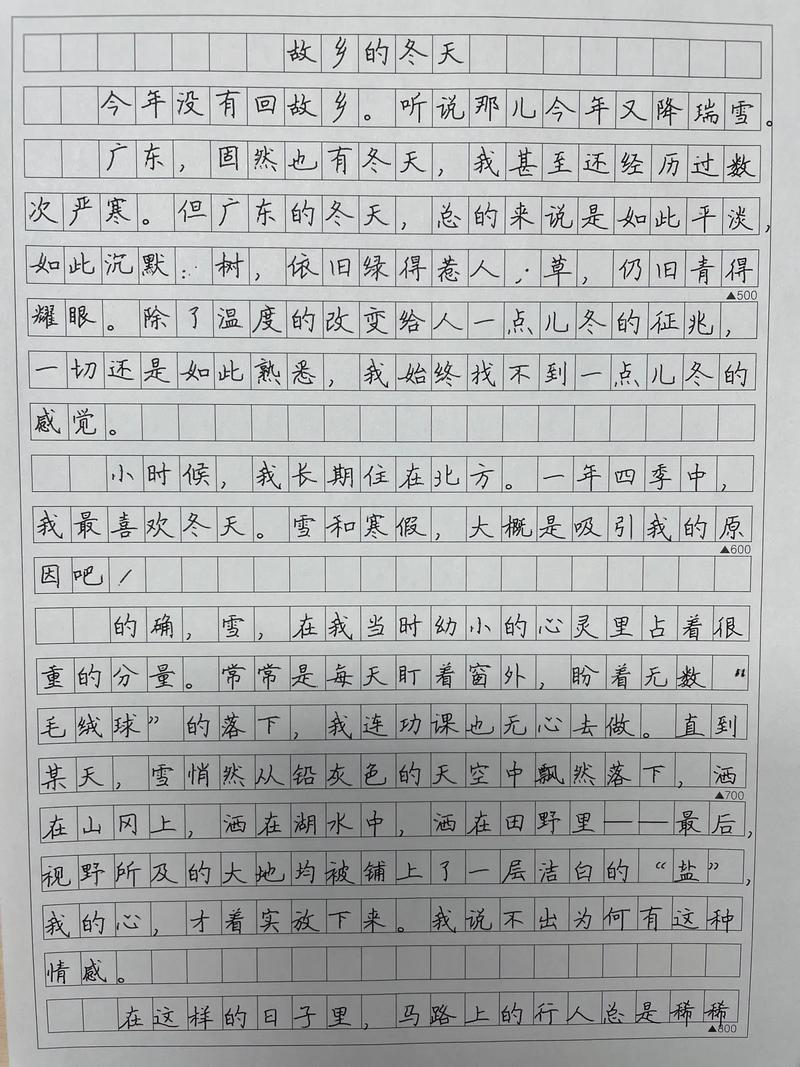 故乡的冬天
今年没有回故乡。听说那儿今年又降瑞雪。
广东，固然也有冬天，我甚至还经历过数
次严寒。但广东的冬天，总的来说是如此平淡，
如此沉默：树，依旧绿得惹人；草，仍旧青得
▲500
耀眼。除了温度的改变给人一点儿冬的征兆，
一切还是如此熟悉，我始终找不到一点儿冬的
感觉。
小时候，我长期住在北方。一年四季中，
我最喜欢冬天。雪和寒假，大概是吸引我的原
▲600
因吧！
的确，雪，在我当时幼小的心灵里占着很
重的分量。常常是每天盯着窗外，盼着无数“
毛绒球”的落下，我连功课也无心去做。直到
某天，雪悄然从铅灰色的天空中飘然落下，洒
▲700
在山冈上，洒在湖水中，洒在田野里——最后，
视野所及的大地均被铺上了一层洁白的“盐”，
我的心，才着实放下来。我说不出为何有这种
情感。
在这样的日子里，马路上的行人总是稀稀
▲800